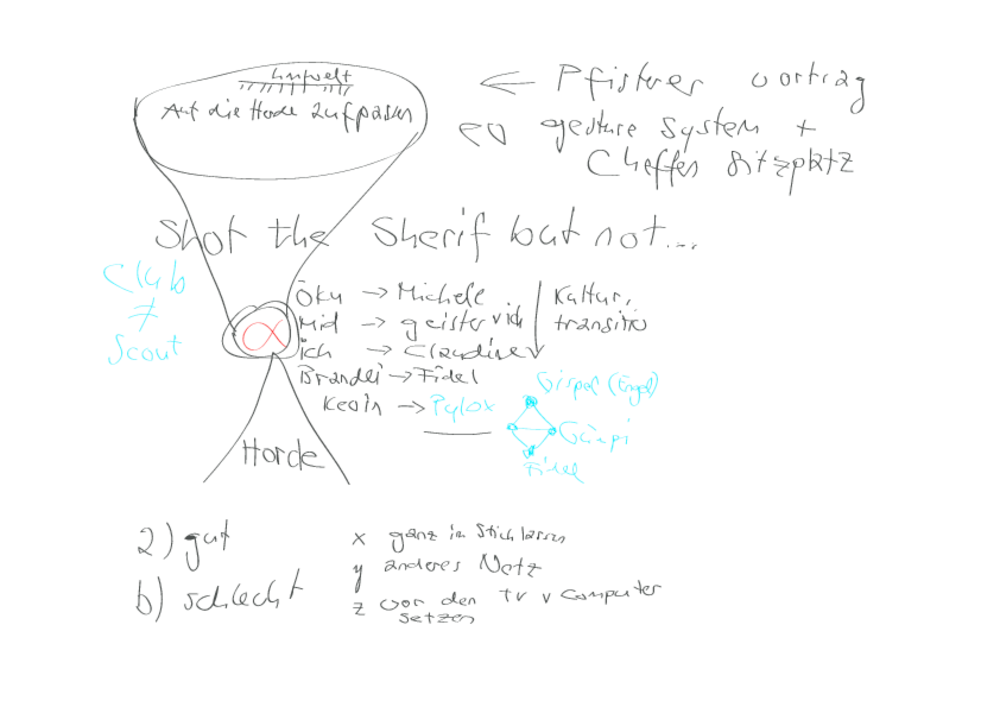 Umwelt
Auf die Horde aufpassen
← Pfisterer vortrag
gesture System +
Cheffen Sitzplatz
Shot the Sherif but not...
Club
≠
Scout
Öku → Michele
Mid → geister vich
ich → Claudine
Brandei → Fidel
Kevin → Pylox
Kultur,
transitio
α
Horde
Girpal (Engel)
Gümpi
Fidel
a) gut
b) schlecht
x ganz im Stich lassen
y anderes Netz
z vor den TV v Computer
setzen